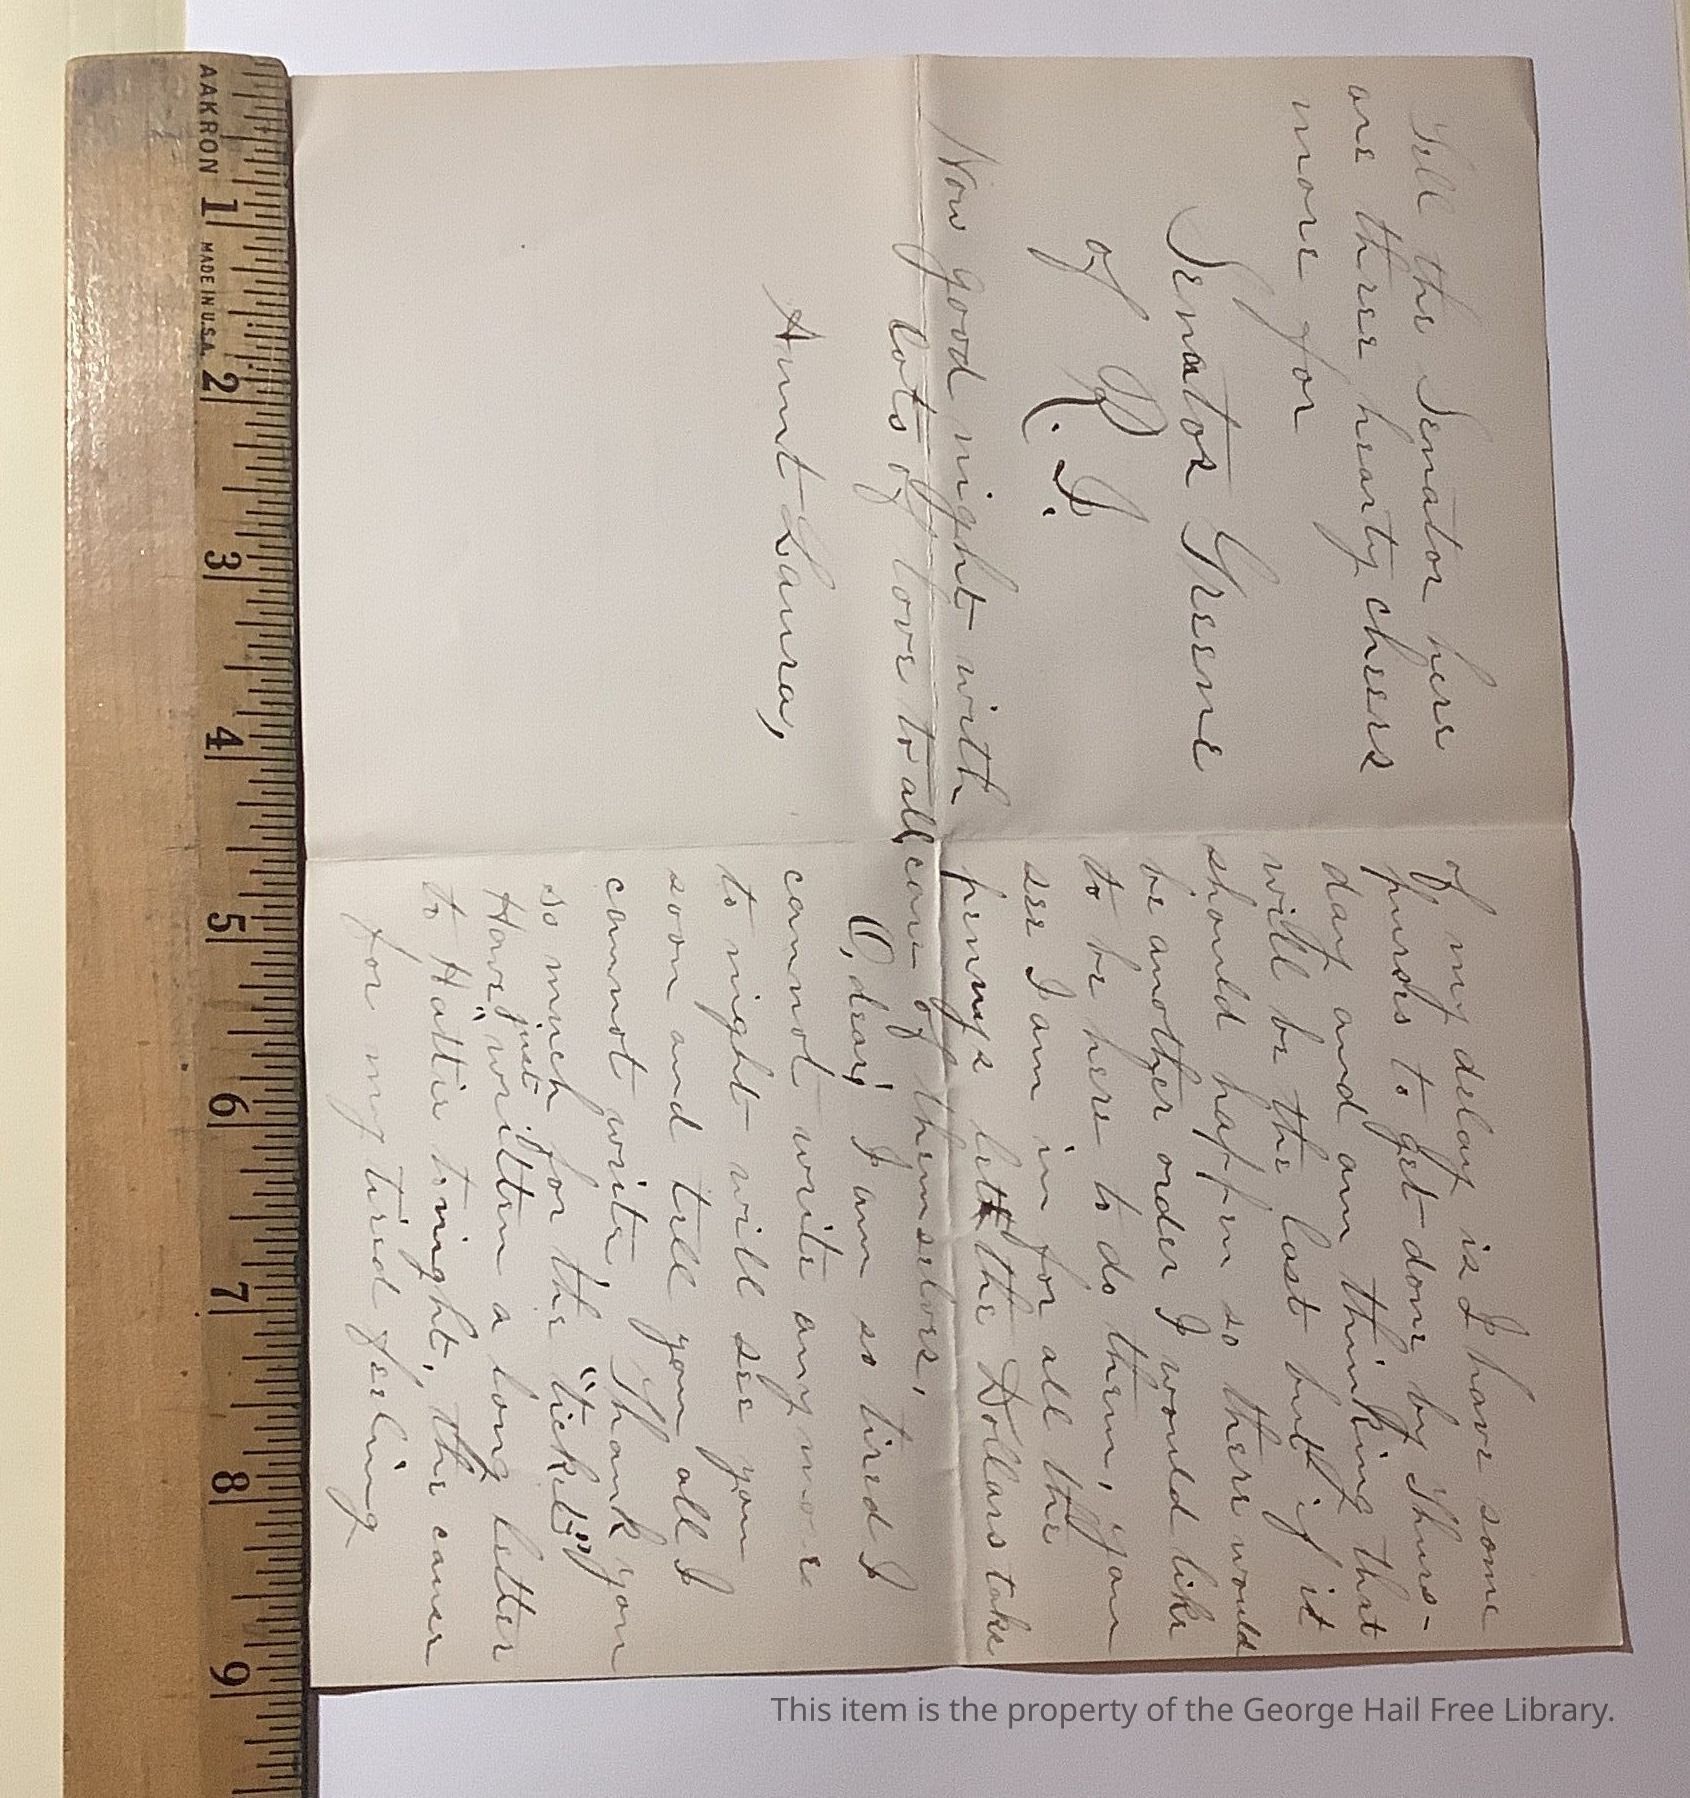 Tell the Senator here
are three hearty cheers
more for
Senator Greene
of R. I.
Now good night with
lots of love to all
Aunt Laura,
of my delay is I have some
purses to get done by Thurs-
day and am thinking that
will be the last but if it
should happen so there would
be another order I would like
to be here to do them, you
see I am in for all the
pennys let the Dollars take
care of themselves,
O, dear, I am so tired I
cannot write any more
to night will see you
soon and tell you all I
cannot write, Thank you
so much for the "ticket"
Have just written a long letter
to Hattie tonight, the cause
for my tired feeling
AAKRON
MADE IN U.S.A.
1
2
3
4
5
6
7
8
9
This item is the property of the George Hail Free Library.